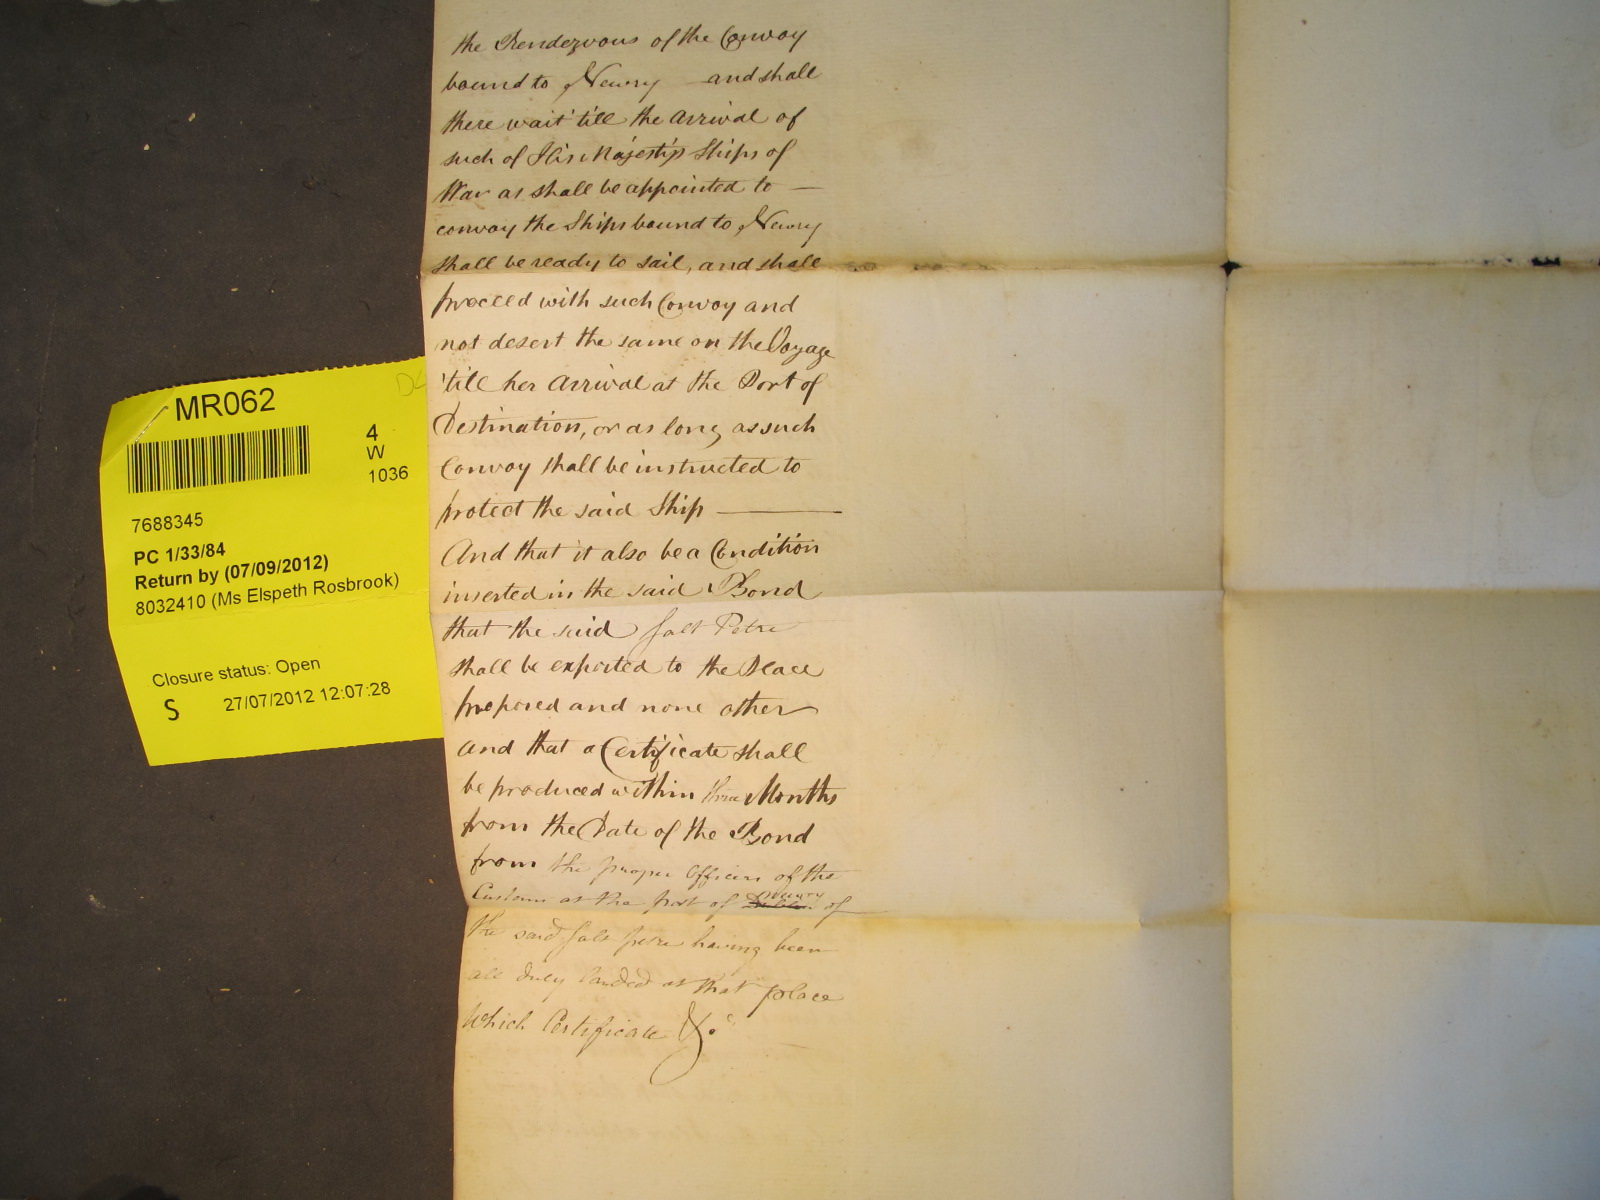 the Rendezvous of the Convoy
bound to Newry and shall
there wait 'till the Arrival of
such of His Majesty's Ships of
War as shall be appointed to —
convoy the Ships bound to Newry
shall be ready to sail, and shall
proceed with such Convoy and
not desert the same on the Voyage
'till her Arrival at the Port of
Destination, or as long as such
Convoy shall be instructed to
protect the said Ship ———
And that it also be a Condition
inserted in the said Bond
that the said Salt Petre
shall be exported to the Place
proposed and none other
and that a Certificate shall
be produced within three Months
from the Date of the Bond
from the proper Officers of the
Customs at the port of Newry of
the said salt petre having been
all duly landed at that place
Which Certificate &c
MR062
4
W
1036
7688345
PC 1/33/84
Return by (07/09/2012)
8032410 (Ms Elspeth Rosbrook)
Closure status: Open
S 27/07/2012 12:07:28